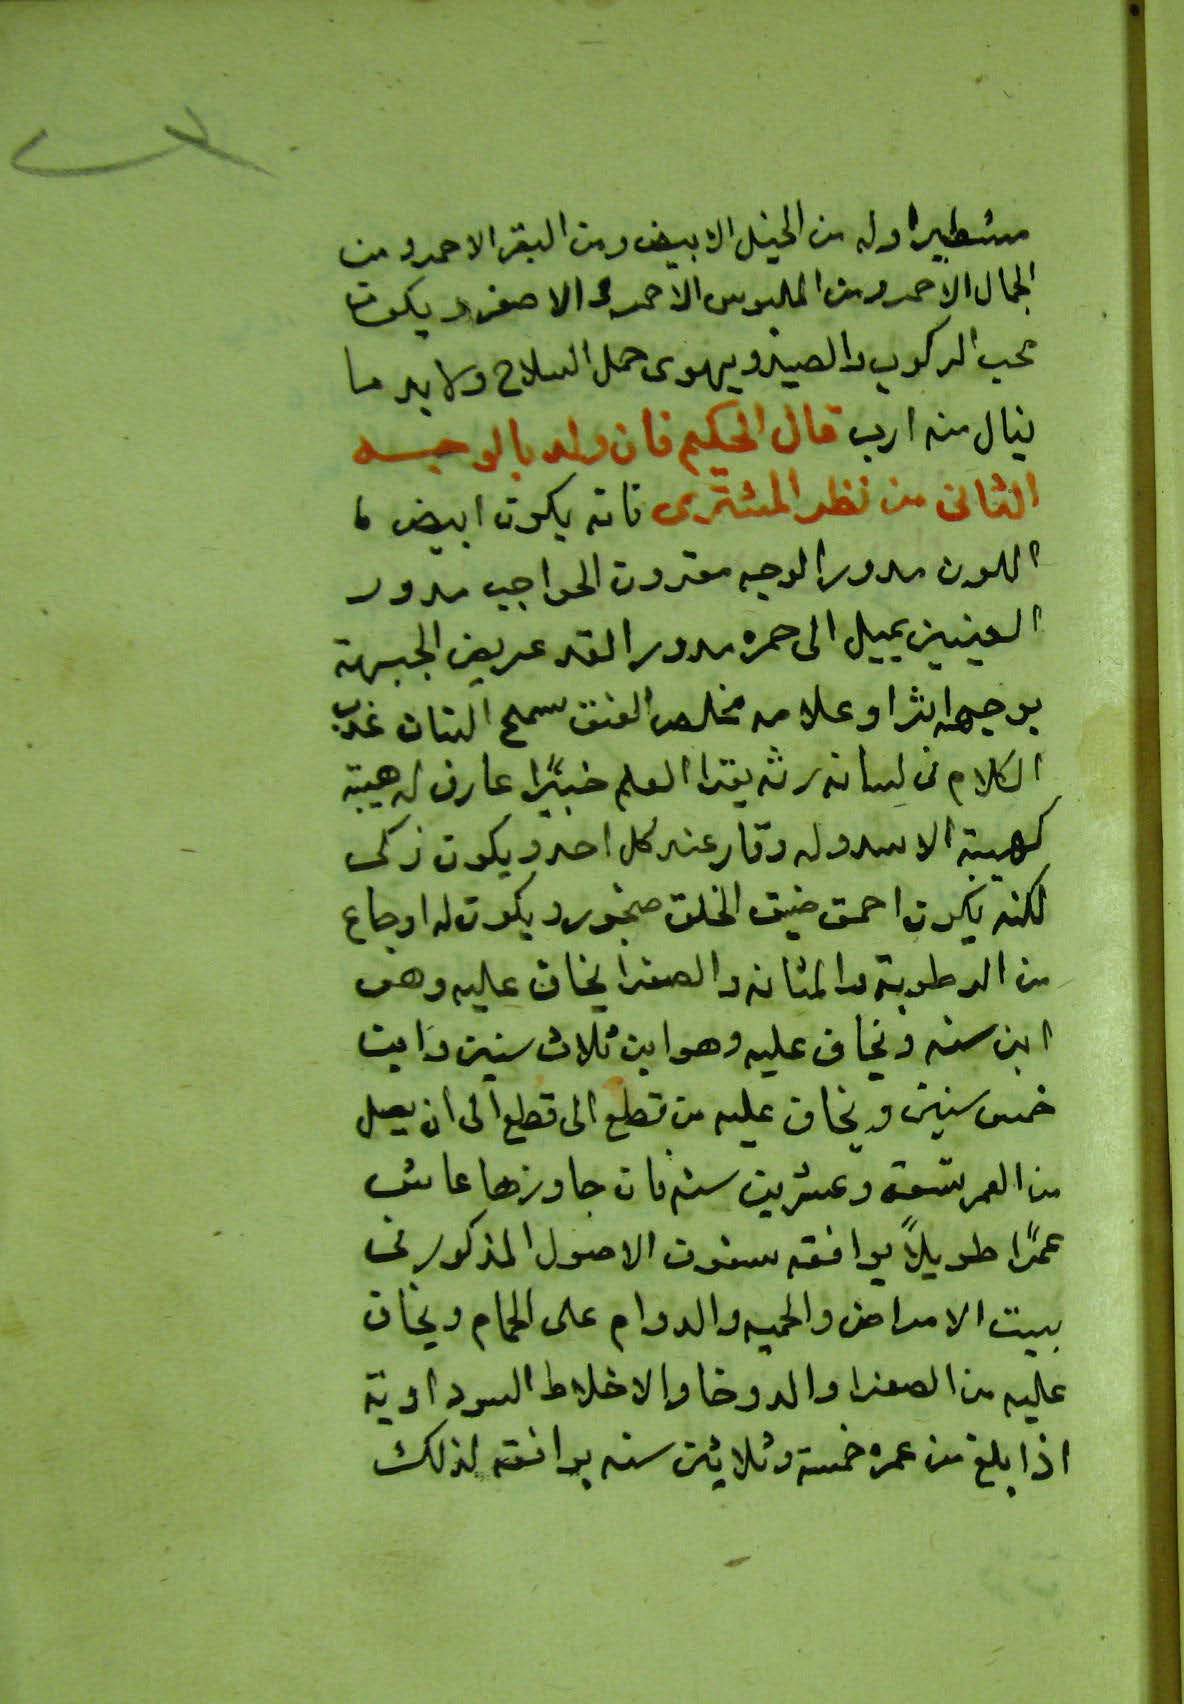 مستطيرا وله من الخيل الابيض ومن البقر الاحمر ومن
الجمال الاحمر ومن الملبوس الاحمر والاصفر ويكون
محب الركوب والصيد ويهوى حمل السلاح ولا بد ما
ينال منه ارب قال الحكيم فان ولد بالوجه
الثانى من نظر المشترى فانه يكون ابيض
اللون مدور الوجه مقرون الحواجب مدور
العينين يميل الى حمره مدور القد عريض الجبهة
بوجهه اثرا وعلامه مخلص العنق سمح البنان عذب
الكلام فى لسانه رثه يقرا العلم خبيرًا عارف له هيبة
كهيبة الاسد وله وقار عند كل احد ويكون زكى
لكنه يكون احمق ضيق الخلق ضجور ويكون له اوجاع
من الرطوبة والمثانه والصفرا يخاف عليه وهو
ابن سنه ويخاف عليه وهو ابن ثلاث سنين وابن
خمس سنين ويخاف عليه من قطع الى قطع الى ان يصل
من العمر تسعة وعشرين سنه فان جاوزها عاش
عمرًا طويلاً يوافقه سفوف الاصول المذكور فى
بيت الامراض والحميه والدوام على الحمام ويخاف
عليه من الصفرا والدوخا والاخلاط السوداوية
اذا بلغ من عمره خمسة وثلاثين سنه يوافقه لذلك